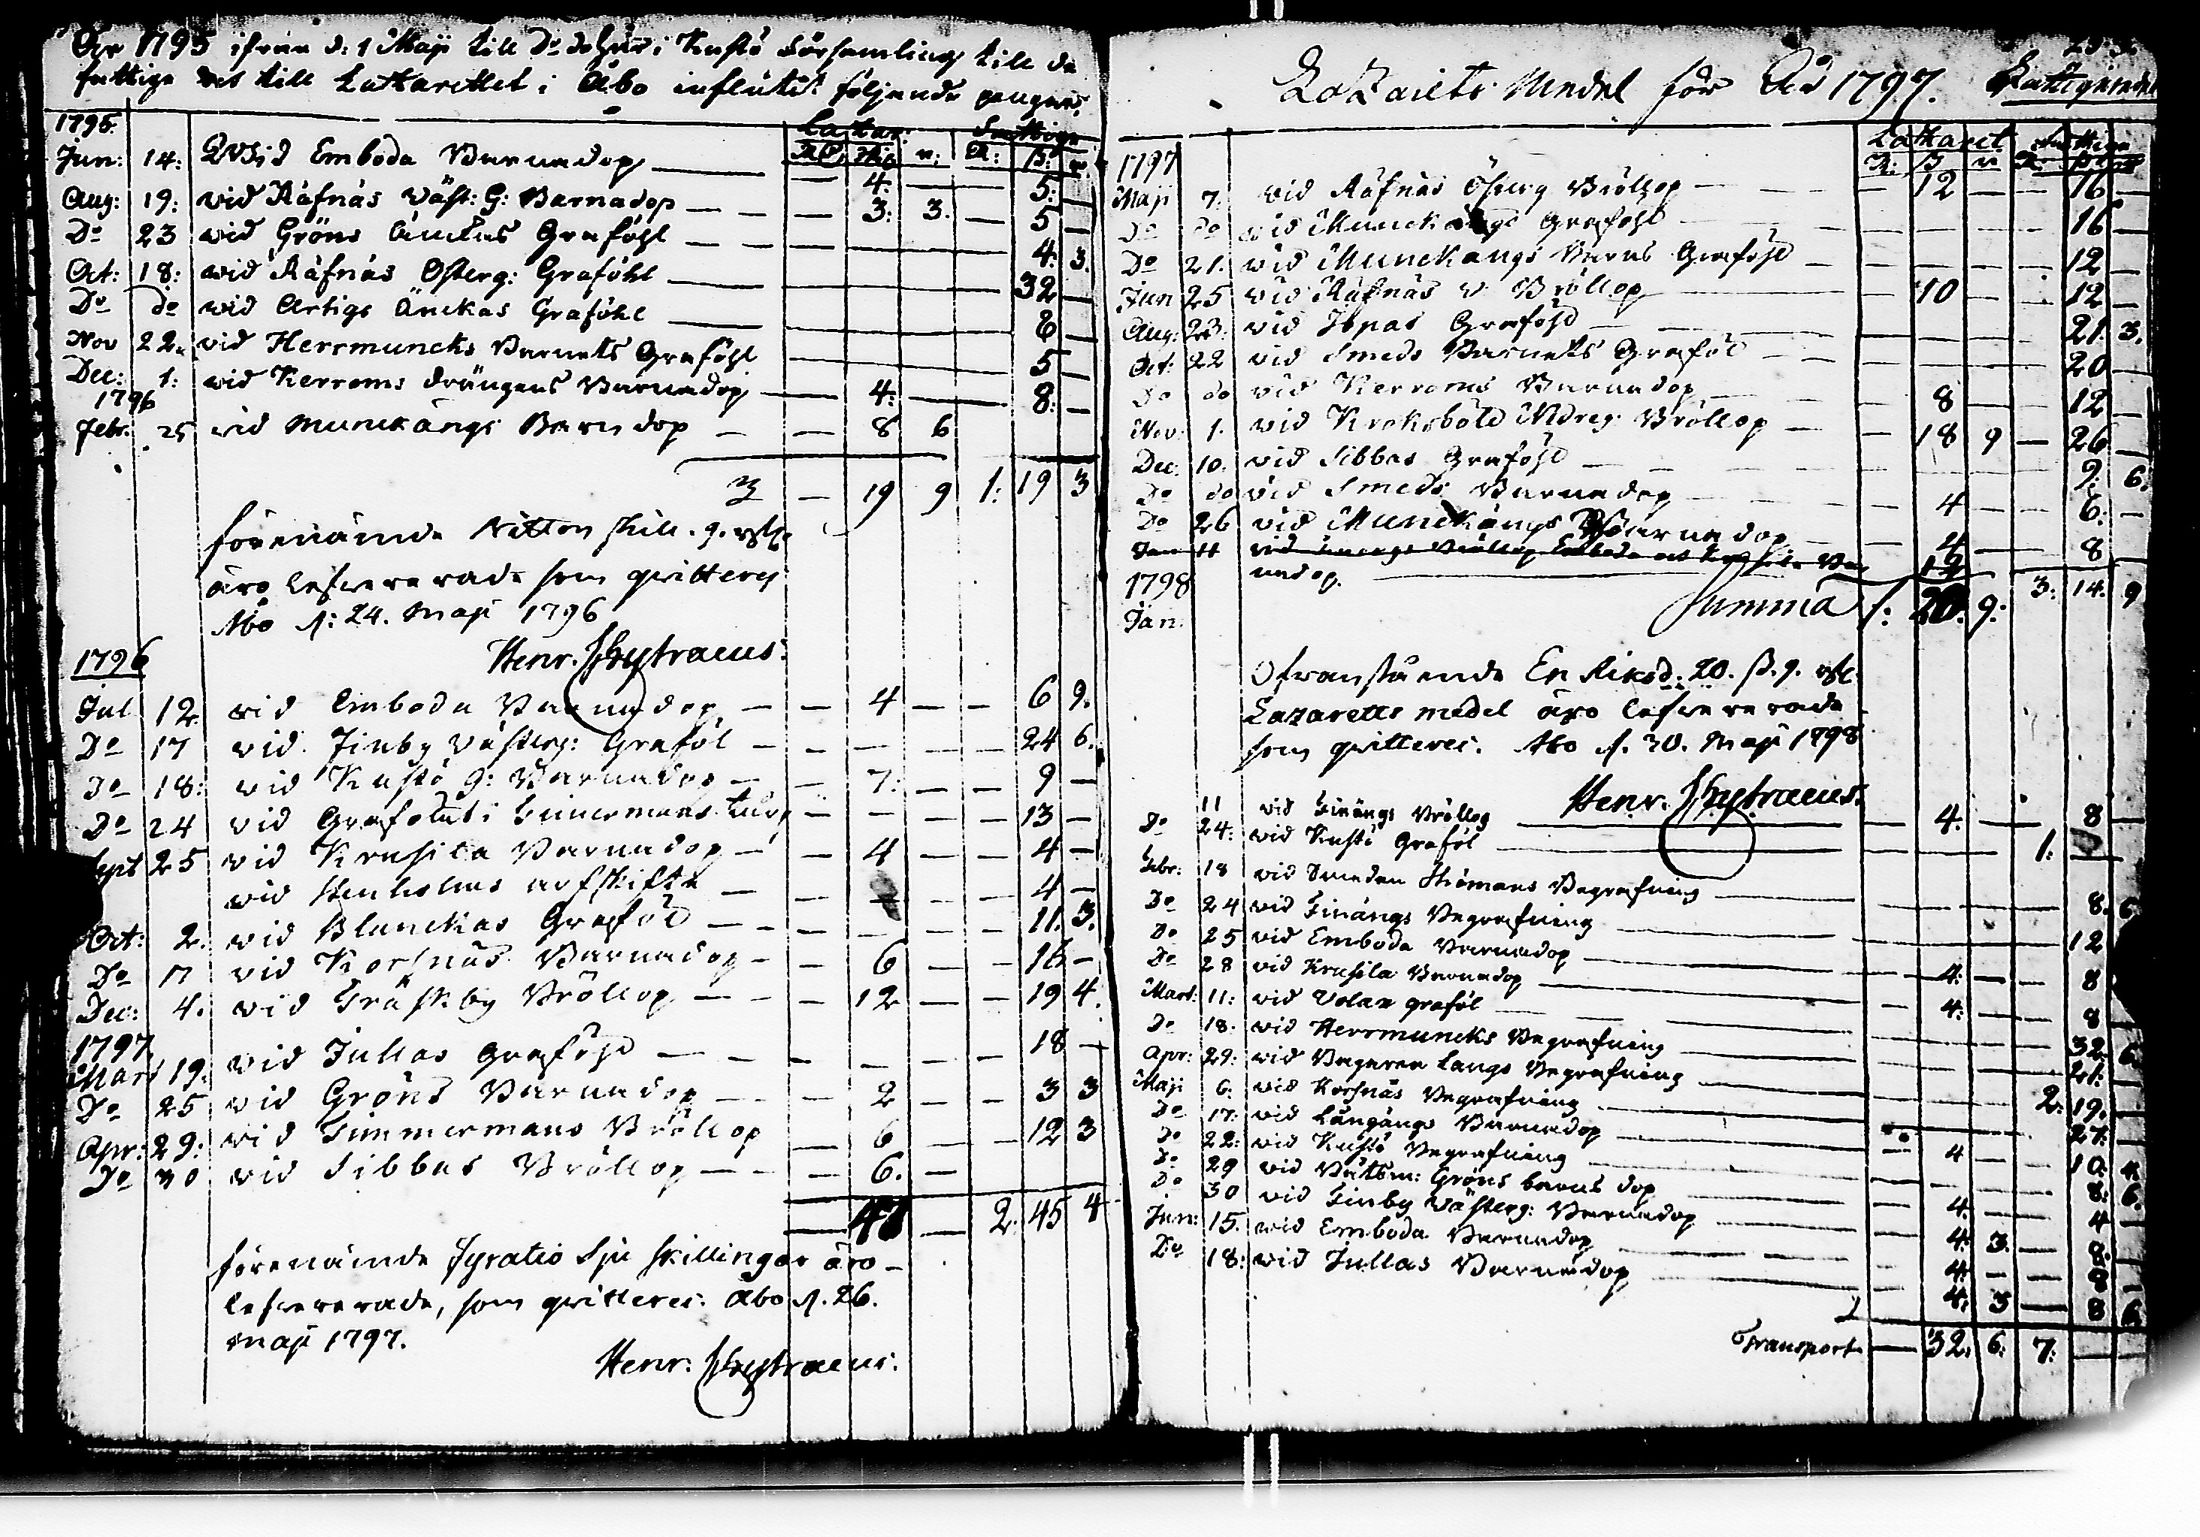 År 1795 ifrån d: 1 Maji till Do i Kustö Församling till de
fattige och till Lattarettet i Åbo influtit följande pengar.
1795. Lattar: Fattige
Jun: 14: Wid Emboda Barnadop — 4. — — 5: —
Aug: 19: wid Räfnäs Väst: G: Barnadop — 3: 3. — 5 —
Do 23 wid Gröns Änckas Graföhl — — — — 4: 3.
Oct: 18: wid Räfnäs Österg: Graföhl — 32 —
Do do wid Artigs Änckas Graföhl — 6 —
Nov 22. wid Herrmuncks Barnets Graföhl — 5 —
Dec: 1: wid Kerroms drängens Barnadop — 4: — — 8: —
1796
Febr. 25 wid Munckängs Barndop — 8 6
— 19 9 1: 19 3
förenämde Nitton skill. 9. rst.
äro lefvererade som qvitteras
Åbo d: 24. Maji 1796
Henr. Skytraeus:
1796
Jul 12. wid Emboda Barnadop — — 4 — — 6 9.
Do 17 wid Finby Västerg: Graföl — — — — 24 6.
Do 18: wid Kustö g: Barnadop — 7: — — 9 —
Do 24 wid Grafölet i Timermans torp — — — — 13 —
Sept 25 wid Krusila Barnadop — 4 — — 4 —
wid Stenholms arfskifte — — — 4 —
Oct: 2. wid Blanckas Graföl — — — — 11. 3.
Do 17 wid Korsnäs Barnadop — — 6 — — 16 —
Dec: 4. wid Träskby Bröllop — — 12 — — 19 4.
1797.
Mars 19. wid Jullas Graföhl — — — — 18 —
Do 25 wid Gröns Barnadop — — 2 — — 3 3
Apr: 29: wid Timmermans Bröllop — 6 — — 12 3
Do 30 wid Sibbas Bröllop — — 6. —
— 47 — 2. 45 4
förenämde Fyratio Sju skillingar äro
lefvererade, som qvitteres. Åbo d. 26.
Maji 1797.
Henr: Skytraeus.
Lazarets Medel för År 1797. Fattigmedel
1797 Lattaret Fattige
Maji 7. wid Räfnäs Österg Bröllop — — 12 — — 16 —
Do do wid Munckängs Graföhl — — — — 16 —
Do 21. wid Munckängs Barns Graföhl — — — — 12 —
Jun 25 wid Räfnäs v. Bröllop — 10 — — 12 —
Aug: 23. wid Jonas Graföhl — — — 21. 3.
Oct: 22 wid Smeds Barnets Graföl — — 20 —
Do do wid Kerroms Barnadop — 8 — — 12 —
Nov: 1. wid Kroksböle Norreg: Bröllop — 18 9 — 26 —
Dec: 10. wid Sibbas Graföhl — — — — 9: 6.
Do do wid Smeds Barnadop — 4 — 6: —
Do 26 wid Munckängs Barnadop — 4 — 8
1798 nadop. — 12
Jan. Summa 1: 20. 9: 3: 14. 9
Ofvanstående En Riksd: 20. ß. 9. rst.
Lazaretts medel äro lefvererade
som qvitteres. Åbo d. 30. Maji 1798
Henr. Skytraeus.
11 wid Finängs Bröllop — 4. — — 8 —
Do 24: wid Kustö Graföl — 1:
Febr: 18 wid Smeden Strömans Begrafning — 8. 6
Do 24 wid Finängs Begrafning — 12
Do 25 wid Emboda Barnadop — 4: — — 8
Do 28 wid Krusila Barnadop — 4. — — 8 —
Mart: 11: wid Volax graföl — 32. 6
Do 18. wid Herrmuncks Begrafning — 21. —
Apr: 29: wid Bagaren Langs Begrafning — 2: 19. —
Maji 6: wid Korsnäs Begrafning — 27: —
Do 17: wid Långängs Barnadop — 4 — — 10. 4.
Do 22: wid Kustö Begrafning — 8: 6.
Do 29 wid Båtsm: Gröns barns dop — 4. — — 4 —
Do 30 wid Finby Västerg: Barnadop — 4. 3. — 8. —
Jun: 15. wid Emboda Barnadop — 4: — — 8 —
Do 18: wid Jullas Barnadop — 4. 3 — 8 6
Transport — 32. 6. 7: —